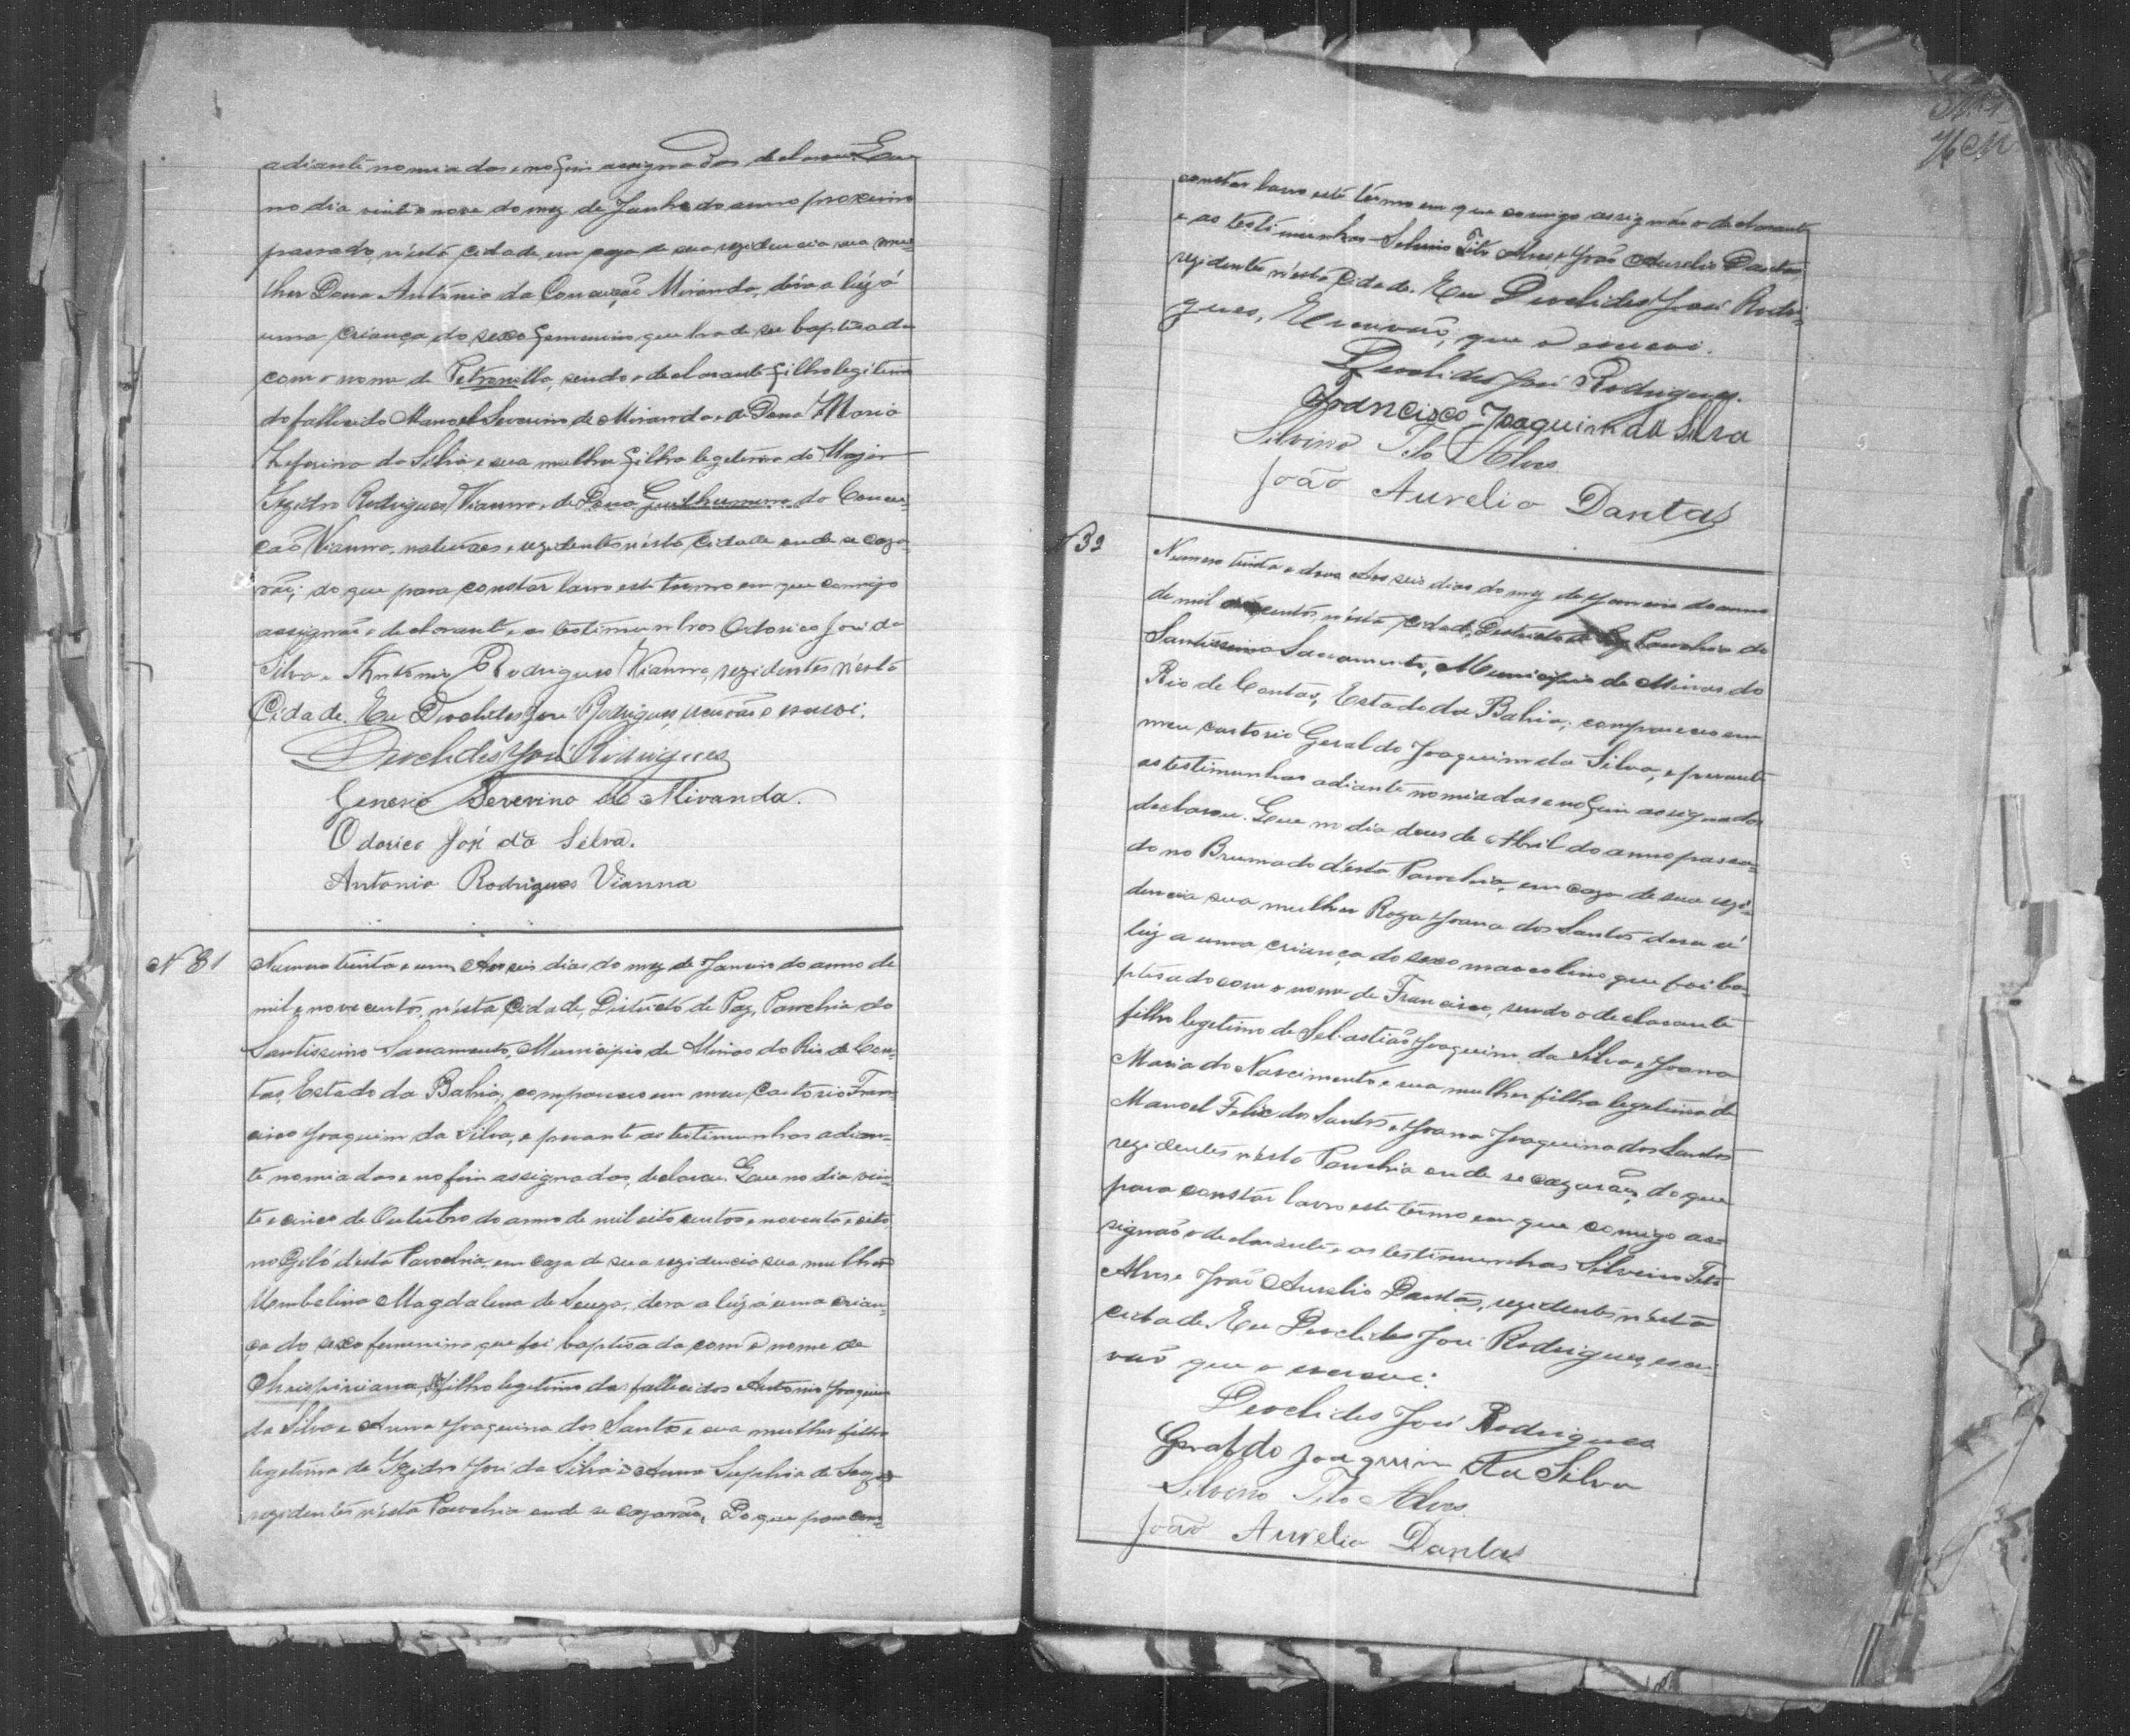 adiante nomiados e no fim assignados declarou Que
no dia vinte e nove do mez de Junho do anno proximo
passado, n'ésta Cidade, em caza de sua rezidencia sua mu-
lher Dona Antonia da Conceição Miranda, déra a lúz á
uma criança do sexo femenino que ha de ser baptisada
com o nome de Petronilha, sendo o declarante filho legitimo
do fallecido Manoel Severino de Miranda e de Dona Maria
Zeferina da Silva e sua mulher filha legitima do Major
Izidro Rodrigues Vianna, e de Dona Guilhermina da Concei-
ção Vianna, naturaes e rezidentes n'ésta Cidade onde se caza-
rão; do que para constar lavro este termo em que comigo
assignão o declarante e as testimunhas Odorico José da
Silva e Antonio Rodrigues Vianna, rezidentes n'ésta
Cidade. Eu Deoclides José Rodrigues, escrivão o escrevi.
Deoclides José Rodrigues
Genesio Severino de Miranda.
Odorico José da Silva.
Antonio Rodrigues Vianna
N 31
Numero trinta e um Aos seis dias do mez de Janeiro do anno de
mil e nove centos, n'ésta Cidade, Districto de Paz, Parochia do
Santissimo Sacramento, Municipio de Minas do Rio de Con-
tas, Estado da Bahia, compareceu em meu Cartorio Fran-
cisco Joaquim da Silva, e perante as testimunhas adian-
te nomiadas e no fim assignados, declarou. Que no dia vin-
te e cinco de Outubro do anno de mil oito centos e noventa e oito,
no Giló d'ésta Parochia, em caza de sua rezidencia sua mulher
Umbelina Magdalena de Souza, dera a lúz á uma crian-
ça do sexo femenino que foi baptisada com o nome de
Chrispiniana, filho legitimo dos fallecidos Antonio Joaquim
da Silva e Anna Joaquina dos Santos e sua mulher filha
legitima de Izidro José da Silva e Anna de Souza
rezidentes n'ésta Parochia onde se cazarão, Do que para cons-
constar lavro este termo em que comigo assignão o declarante
e as testimunhas Silvino Tito Alves e João Aurelio Dantas,
rezidentes n'ésta Cidade. Eu Deoclides José Rodri-
gues, Escrivão, que o escrevi.
Deoclides José Rodrigues.
Francisco Joaquim da Silva
Silvino Tito Alves
João Aurelio Dantas
N 32
Numero trinta e dous Aos seis dias do mez de Janeiro do anno
de mil centos, n'ésta Cidade, Districto de Paz Parochia do
Santissimo Sacramento, Municipio de Minas do
Rio de Contas, Estado da Bahia, compareceu em
meu cartorio Geraldo Joaquim da Silva, e perante
as testimunhas adiante nomiadas e no fim assignados
declarou. Que no dia dous de Abril do anno passa-
do no Brumado d'ésta Parochia, em caza de sua rezi-
dencia sua mulher Roza Joana dos Santos dera á
lúz a uma criança do sexo masculino que foi ba-
ptisado com o nome de Francisco, sendo o declarante
filho legetimo de Sebastião Joaquim da Silva e Joana
Maria do Nascimento e sua mulher filha legetima de
Manoel Felix dos Santos e Joana Joaquina dos Santos
rezidentes n'ésta Parochia onde se cazarão, do que
para constar lavro este termo em que comigo as-
signão o declarante e as testimunhas Silvino Tito
Alves e João Aurelio Dantas, rezidentes n'ésta
cidade. Eu Deoclides José Rodrigues, escri-
vão que o escrevi.
Deoclides José Rodrigues
Geraldo Joaquim da Silva
Silvino Tito Alves
João Aurelio Dantas